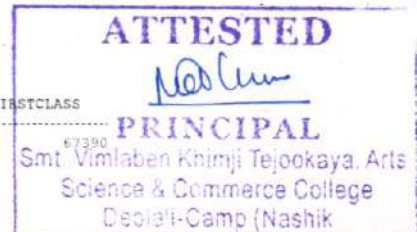 ATTESTED
FIRSTCLASS
PRINCIPAL
67390
Smt. Vimlaben Khimji Tejookaya. Arts
Science & Commerce College
Deolali-Camp (Nashik